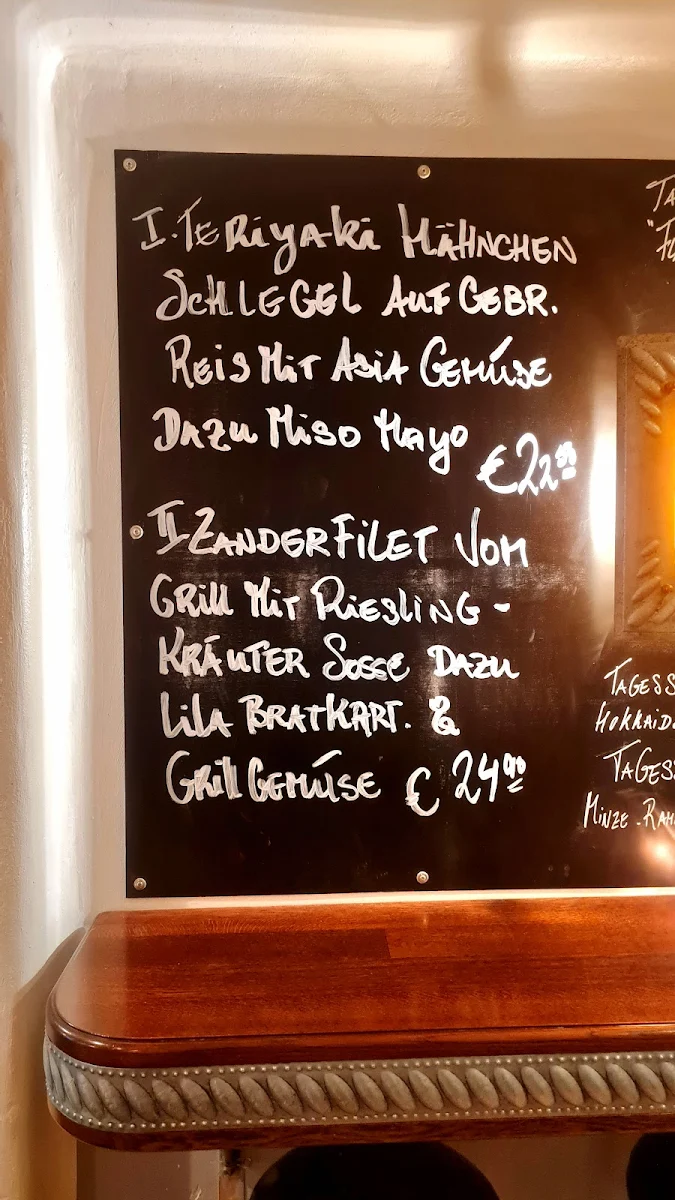 I. Teriyaki Hähnchen
Schlegel auf gebr.
Reis mit Asia Gemüse
Dazu Miso Mayo
€22
II Zanderfilet vom
Grill mit Riesling-
Kräuter Sosse dazu
Lila Bratkart. &
Grill Gemüse € 24⁹⁰
Tagess
Hokkaid
Tagess
Minze-Rah